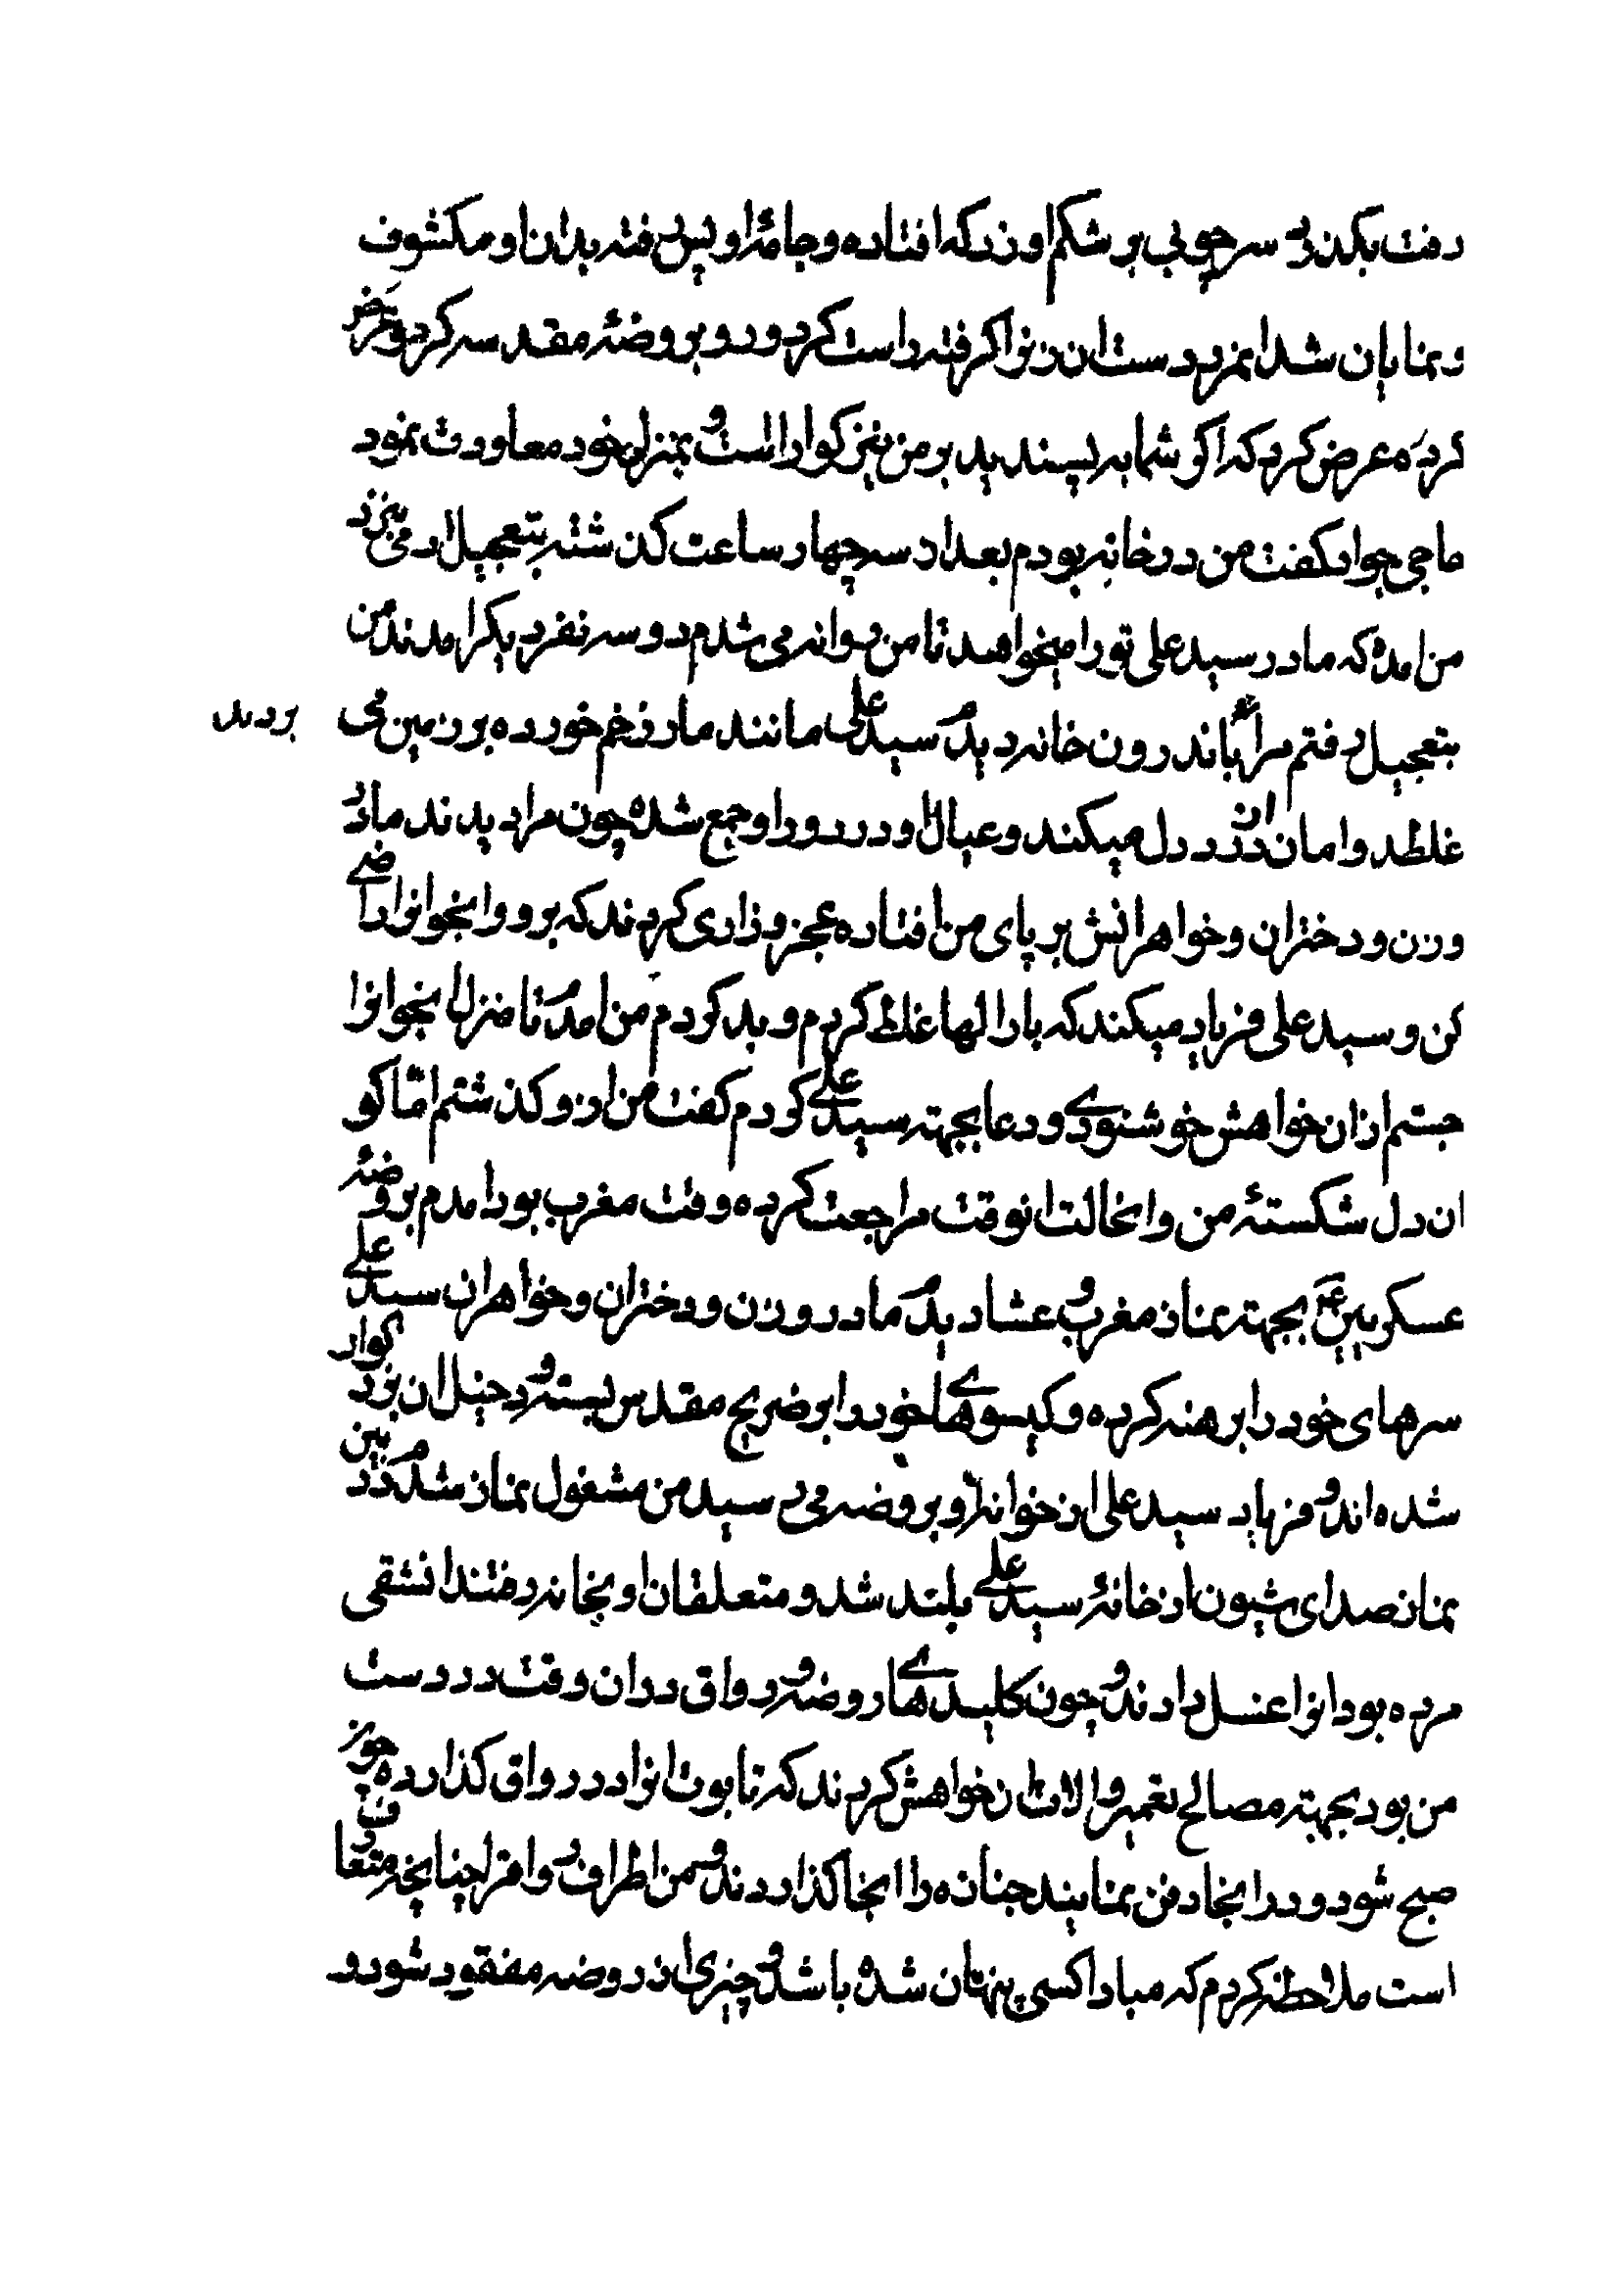 رفت بکندی سر چوبی بر شکم او زد که افتاده و جامهٔ او پس رفته بدن او مکشوف
و نمایان شد انمرد دست ان زنرا گرفته راست کرد و رو بروضهٔ مقدسه کرد و عرض
کرده عرض کرد که اگر شما به پسندید بر من نیز گوارا است و بمنزل خود معاودت نمود
حاجی جواد گفت من در خانه بودم بعد از سه چهار ساعت گذشته بتعجیل ادمی نزد
من امده که مادر سید علی تو را میخواهد تا من روانه می شدم دو سه نفر دیگر امدند من
بتعجیل رفتم مرا باندرون خانه دیدم سید علی مانند مار زخم خورده بر زمین می
بردند
غلطد و امان از درد دل میکند و عیال او در دور او جمع شده چون مرا دیدند مادر
و زن و دختران و خواهرانش بر پای من افتاده عجز و زاری کردند که برو و انجوانرا راضی
کن و سید علی فریاد میکند که بارالها غلط کردم و بد کردم من امدم تا منزل انجوانرا
جستم ازان خواهش خوشنودی و دعا بجهته سید علی کردم گفت من از او گذشتم اما کو
ان دل شکستهٔ من و انحالت انوقت مراجعت کرده وقت مغرب بود امدم بروضهٔ
عسکریین ع بجهته نماز مغرب و عشا دیدم مادر و زن و دختران و خواهران سید علی
سرهای خود را برهنه کرده و گیسوهای خود را بر ضریح مقدس بسته و دخیل ان بزرگوار
شده اند و فریاد سید علی از خوانه او بروضه می رسید من مشغول نماز شدم در بین
نماز صدای شیون از خانهٔ سید علی بلند شد و متعلقان او بخانه رفتند انشقی
مرده بود انرا غسل دادند و چون کلیدهای روضه و رواق دران وقت در دست
من بود بجهته مصالح تعمیر و الات ان خواهش کردند که تابوت انرا در رواق گذارده چون
صبح شود در انجا دفن نمایند جنازه را انجا گذاردند و من اطراف رواق را چنانچه متعارف
است ملاحظه کردم که مبادا کسی پنهان شده باشد و چیزی از روضه مفقود شود و